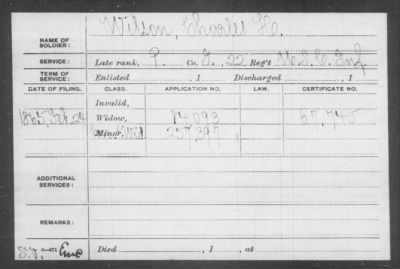 NAME OF SOLDIER: Wilson, Charles H.
SERVICE: Late rank, P. Co. I, 22 Reg't U.S.C. Inf.
TERM OF SERVICE: Enlisted , 1 Discharged , 1
DATE OF FILING. CLASS. APPLICATION NO. LAW. CERTIFICATE NO.
Invalid,
1865, Feb 24 Widow, 84,093 57,745
Minor,
ADDITIONAL SERVICES:
REMARKS:
Died , 1 , at